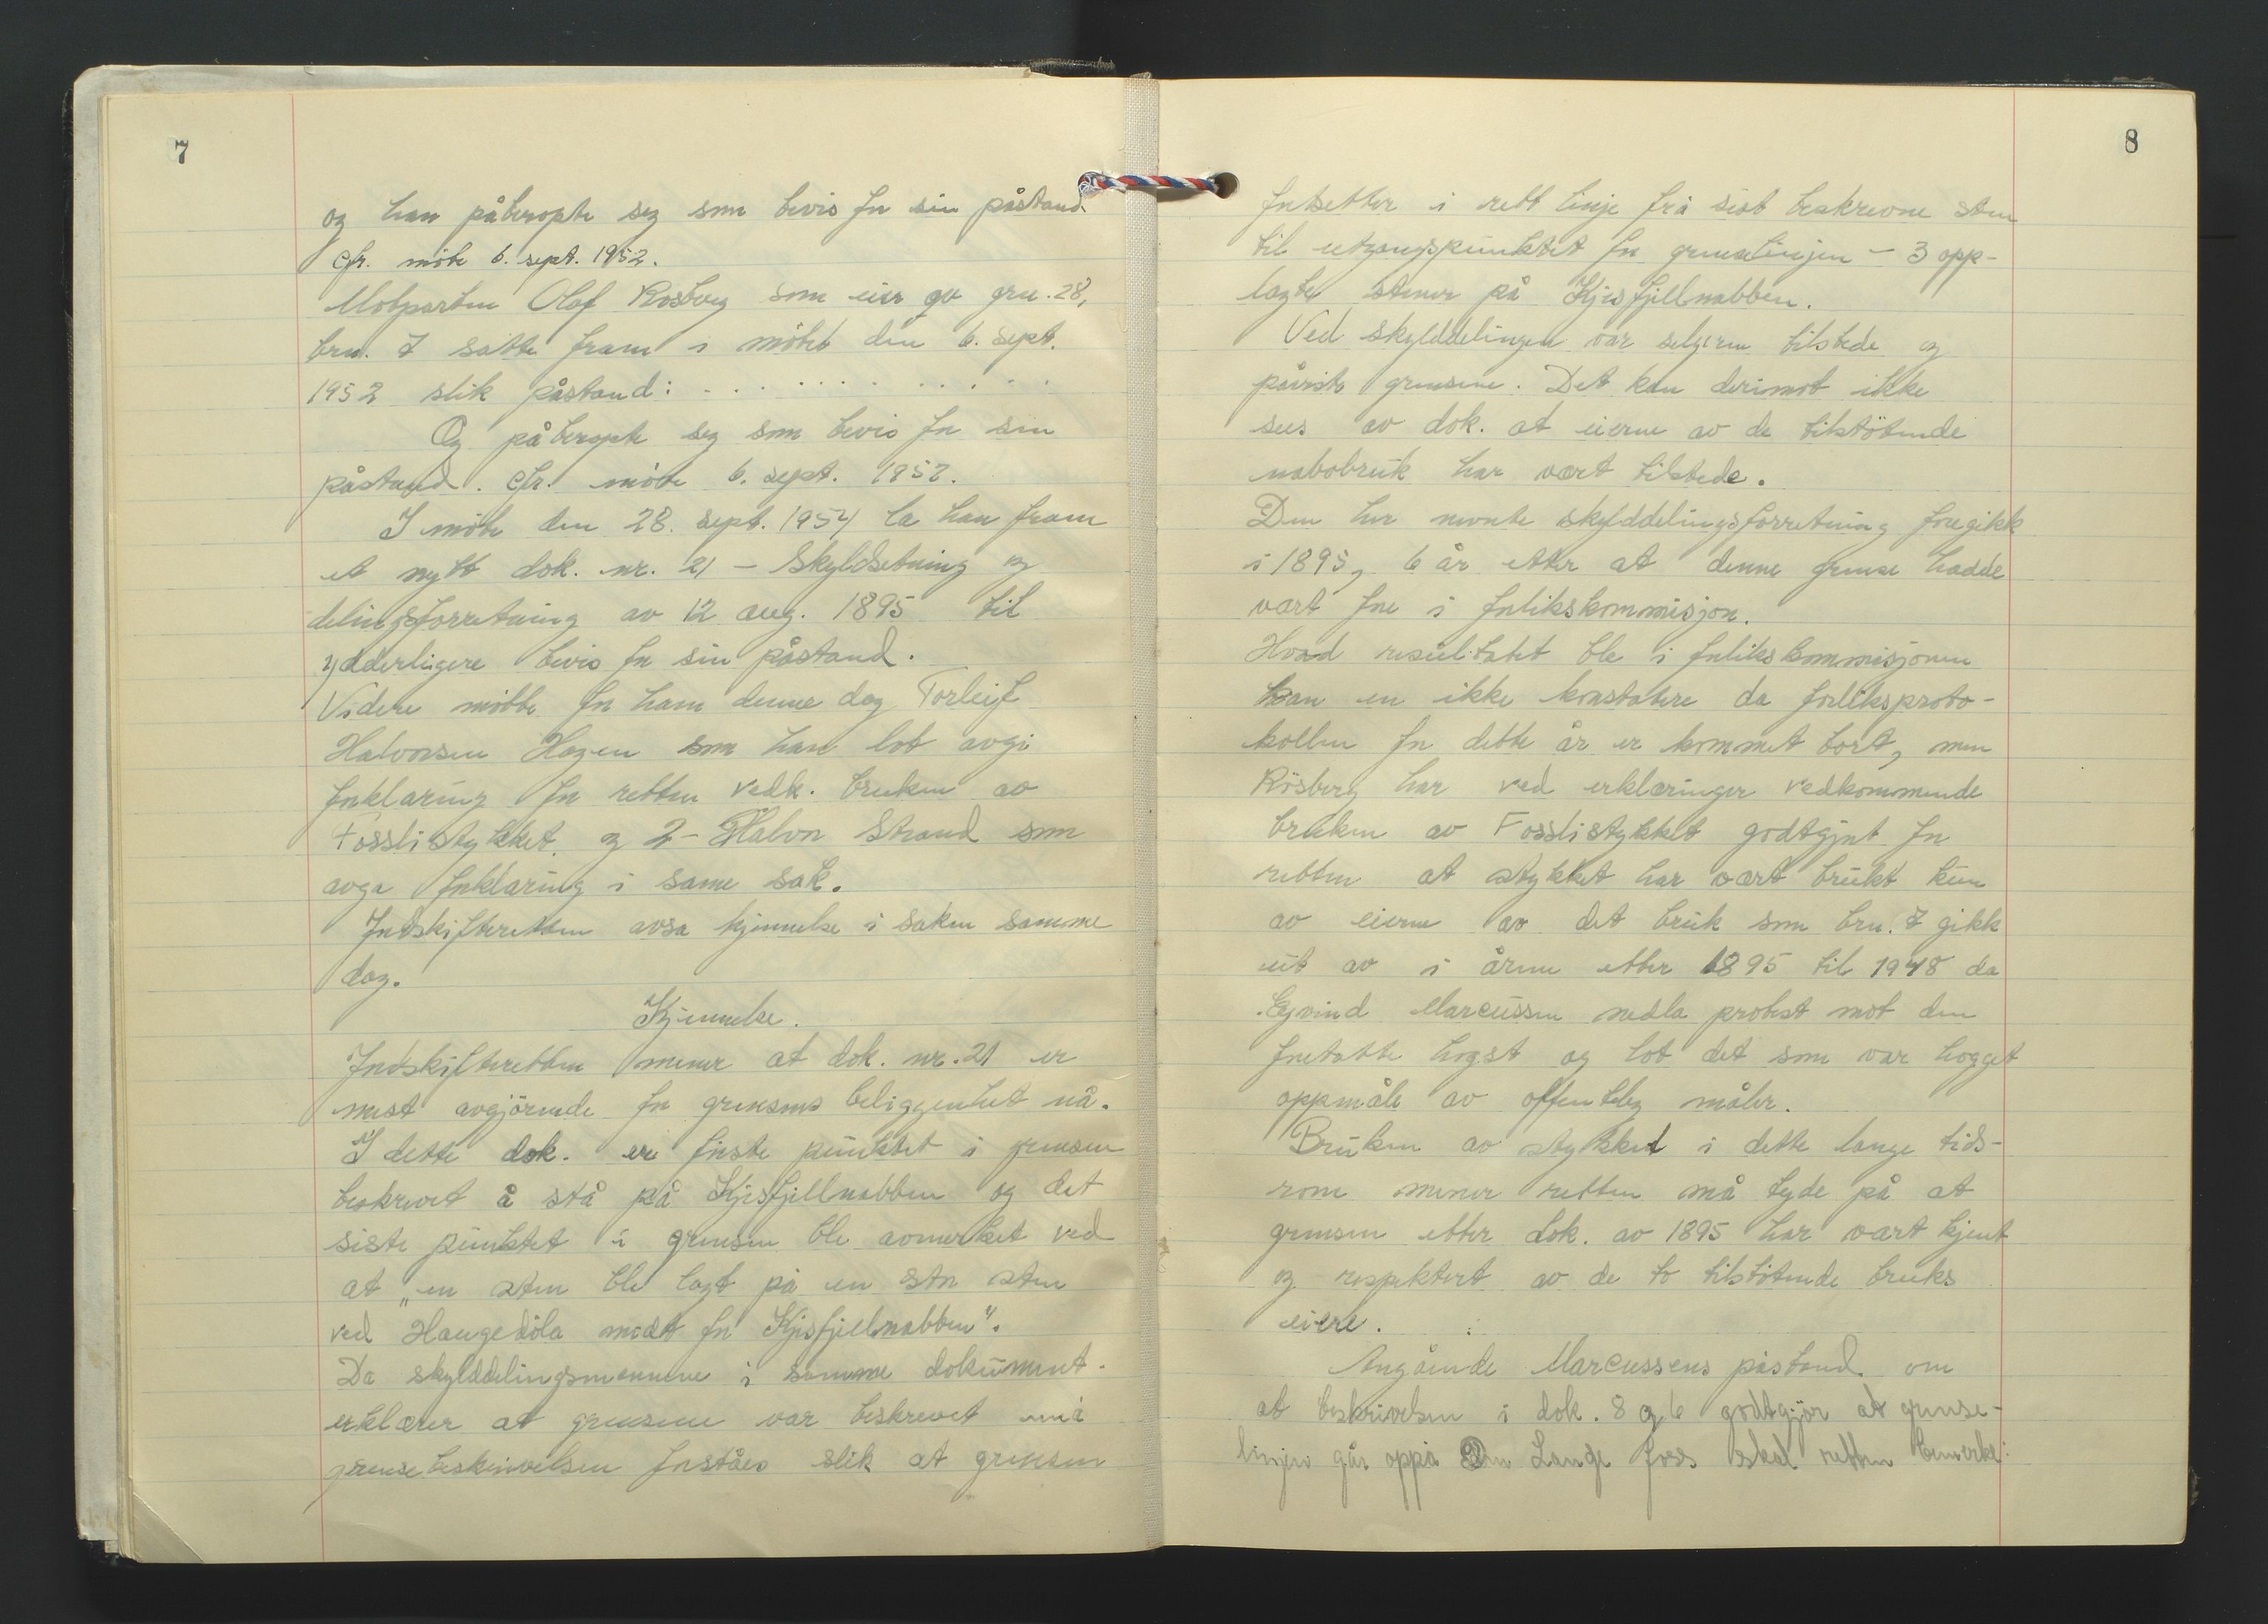 7
og han påberopte seg som bevis for sin påstand
cfr. möte 6. sept. 1952.
Motparten Olof Rosberg som eier av gnr. 28,
brn. 7 satte fram i mötet den 6. sept.
1952 slik påstand: . . . . . . . . . . . .
Og påberopte seg som bevis for sin
påstand. cfr. möte 6. sept. 1952.
I möte den 28. sept. 1954 la han fram
et nytt dok. nr. 21 – Skyldsetning og
delingsforretning av 12 aug. 1895 til
ydderligere bevis for sin påstand.
Videre mötte for ham denne dag Torleif
Halvorsen Hagen som han lot avgi
forklaring for retten vedk. bruken av
Fosslistykket og 2- Halvor Strand som
avga forklaring i same sak.
Jordskifteretten avsa kjennelse i saken samme
dag.
Kjennelse.
Jordskifteretten mener at dok. nr. 21 er
mest avgjörende for grensens beliggenhet nå.
I dette dok. er förste punktet i grensen
beskrevet å stå på Kjisfjellnabben og det
siste punktet i grensen ble avmerket ved
at „en sten ble lagt på en stor sten
ved Haugedöla midt for Kjisfjellnabben".
Da skylddelingsmennene i samme dokument
erklærer at grensene var beskrevet må
grensebeskrivelsen forståes slik at grensen
8
fortsetter i rett linje frå sist beskrevne sten
til utgangspunktet for grenselinjen – 3 opp-
lagte stener på Kjisfjellnabben.
Ved skylddelingen var selgeren tilstede og
påviste grensene. Det kan derimot ikke
sees av dok. at eierne av de tilstötende
nabobruk har vært tilstede.
Den her nevnte skylddelingsforretning foregikk
i 1895, 6 år etter at denne grense hadde
vært före i forlikskommisjon.
Hvad resultatet ble i forlikskommisjonen
kan en ikke konstatere da forliksproto-
kollen for dette år er kommet bort, men
Rösberg har ved erklæringer vedkommende
bruken av Fosslistykket godtgjort for
retten at stykket har vært brukt kun
av eierne av det bruk som brn. 7 gikk
ut av i årene etter 1895 til 1948 da
Eyvind Marcussen nedla protest mot den
foretatte hogst og lot det som var hogget
oppmåle av offentleg måler.
Bruken av stykket i dette lange tids-
rom mener retten må tyde på at
grensen etter dok. av 1895 har vært kjent
og respektert av de to tilstötende bruks
eiere.
Angående Marcussens påstand om
at beskrivelsen i dok. 8 og 6 godtgjör at grense-
linjen går oppå Den Lange foss skal retten bemerke: